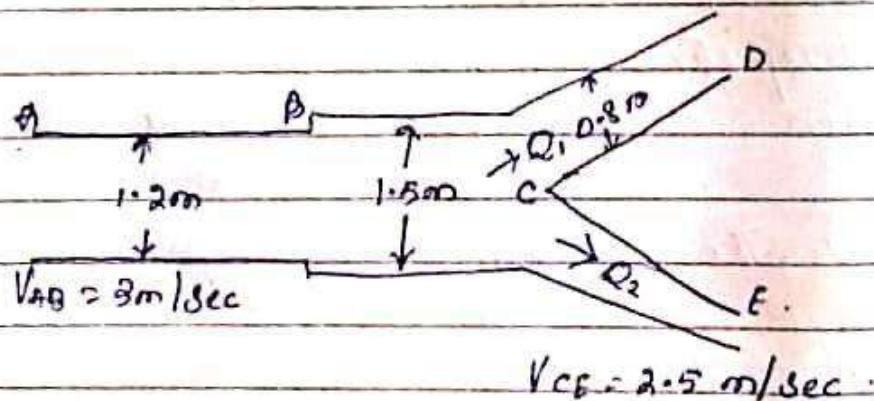 A B D
1.2m 1.5m Q₁ 0.8m
C
Q₂
E.
VAB = 3m/sec
VCE = 2.5 m/sec.